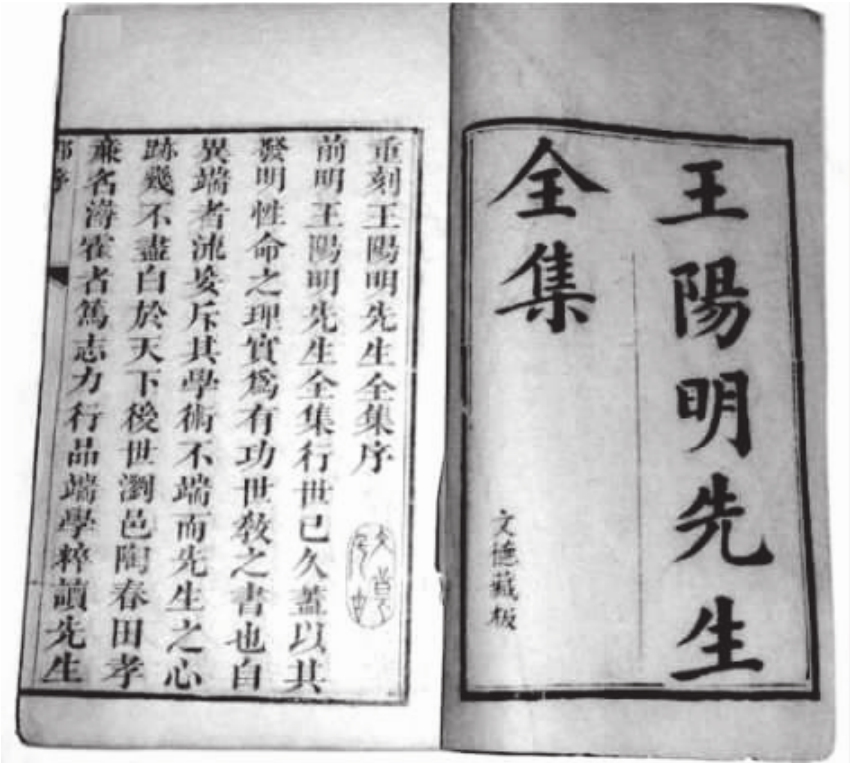 王陽明先生
全集
文德藏板
重刻王陽明先生全集序
前明王陽明先生全集行世已久蓋以其
發明性命之理實爲有功世教之書也自
異端者流妄斥其學術不端而先生之心
跡幾不盡白於天下後世瀏邑陶春田孝
廉名潯霍者篤志力行品端學粹讀先生